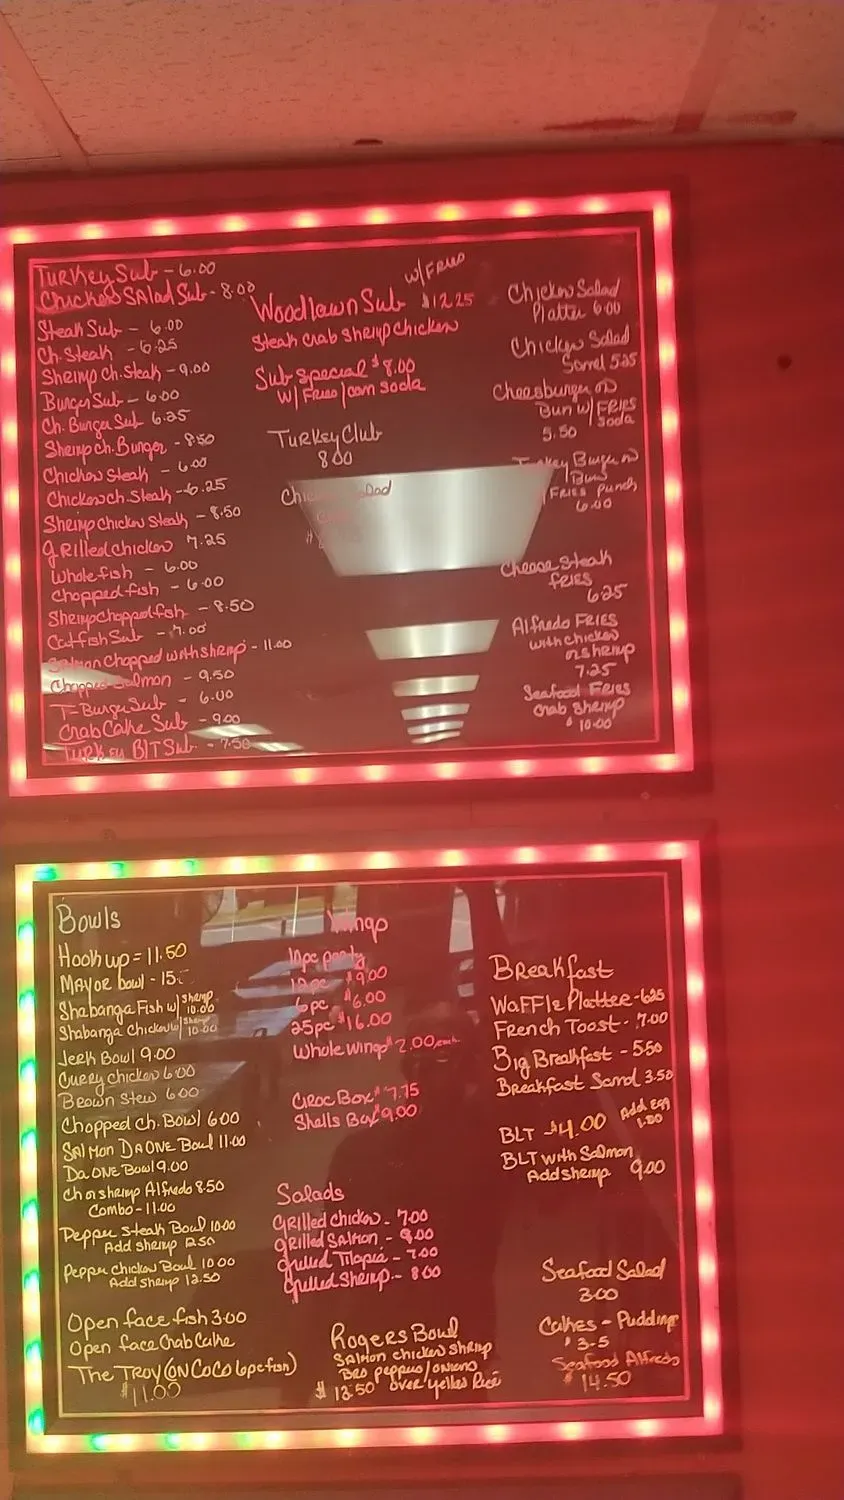 Turkey Sub - 6.00
Chicken Salad Sub - 8.00
Steak Sub - 6.00
Ch. Steak - 6.25
Shrimp Ch. Steak - 9.00
Burger Sub - 6.00
Ch. Burger Sub 6.25
Shrimp Ch. Burger - 8.50
Chicken Steak - 6.00
Chicken ch. Steak - 6.25
Shrimp Chicken Steak - 8.50
Grilled Chicken 7.25
Whole fish - 6.00
Chopped fish - 6.00
Shrimp Chopped fish - 8.50
Catfish Sub - 7.00
Salmon Chopped with shrimp - 11.00
Chopped Salmon - 9.50
T-Burger Sub - 6.00
Crab Cake Sub - 9.00
Turkey BLT Sub - 7.50
w/ Fries
Woodlawn Sub $12.25
Steak Crab Shrimp Chicken
Sub Special $8.00
w/ Fries / can soda
Turkey Club
8.00
Chicken Salad
Chicken Salad
Platter 6.00
Chicken Salad
5.25
Cheesburger on
Bun w/ Fries
Soda
5.50
Turkey Burger on
Bun
Fries punch
6.00
Cheese Steak
Fries
6.25
Alfredo Fries
with chicken
or shrimp
7.25
Seafood Fries
Crab Shrimp
$10.00
Bowls
Hook up = 11.50
Mayor bowl - 15
Shabanga Fish w/ shrimp 10.00
Shabanga Chicken w/ shrimp 10.00
Jerk Bowl 9.00
Curry chicken 6.00
Brown Stew 6.00
Chopped Ch. Bowl 6.00
Salmon Da One Bowl 11.00
Da One Bowl 9.00
Ch or shrimp Alfredo 8.50
Combo - 11.00
Pepper Steak Bowl 10.00
Add shrimp 12.50
Pepper chicken Bowl 10.00
Add shrimp 12.50
Open face fish 3.00
Open face Crab Cake
The Troy (on Coco 6pc fish)
$11.00
Wings
10pc party
12pc $9.00
6pc $6.00
25pc $16.00
Whole wings $2.00 each
Ciroc Box $7.75
Shells Box $9.00
Salads
Grilled Chicken - 7.00
Grilled Salmon - 9.00
Grilled Tilapia - 7.00
Grilled Shrimp - 8.00
Rogers Bowl
Salmon chicken shrimp
Bro peppers / onions
$13.50 over yellow Rice
Breakfast
Waffle Platter - 6.25
French Toast - 7.00
Big Breakfast - 5.50
Breakfast Sand 3.50
BLT $4.00 Add Egg 1.00
BLT with Salmon
Add shrimp 9.00
Seafood Salad
3.00
Cakes - Pudding
$3-5
Seafood Alfredo
$14.50